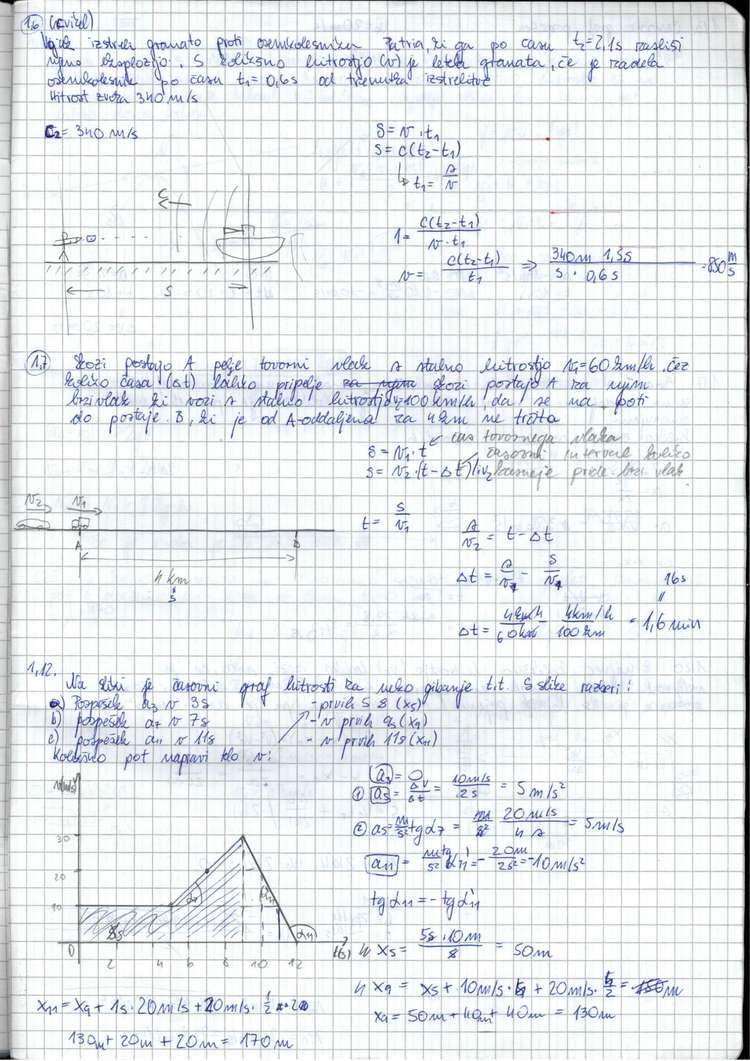 1.6
izstreli granato proti osemkolesniku Patria, ki ga po času t₂=2,1s zasliši
njeno eksplozijo. S kolikšno hitrostjo (v) je letela granata, če je zadela
osemkolesnik po času t₁= 0,6s od trenutka izstrelitve
Hitrost zvoka 340 m/s
C₂= 340 m/s
s= v·t₁
s= c(t₂-t₁)
t₁= s/v
1= c(t₂-t₁)/v·t₁
v= c(t₂-t₁)/t₁ ⇒ 340m 1,5s/s · 0,6s = 850 m/s
c
s
1.7 Skozi postajo A pelje tovorni vlak s stalno hitrostjo v₁=60 km/h. Čez
koliko časa (Δt) lahko pripelje skozi postajo A za njim
brzi vlak ki vozi s stalno hitrostjo v₂=100 km/h, da se na poti
do postaje B, ki je od A oddaljena za 4 km ne trčita
s= v₁·t čas tovornega vlaka
s= v₂·(t-Δt) časovni interval koliko
kasneje pride brzi vlak
v₂ v₁
A B
4 km
s
t= s/v₁
s/v₂ = t-Δt
Δt= s/v₁ - s/v₂
16s
Δt= 4km h/60km - 4km/h/100km = 1,6 min
1.12.
Na sliki je časovni graf hitrosti za neko gibanje t.t. S slike razberi:
a) Pospešek a₃ v 3s - prvih 5 s (x₅)
b) pospešek a₇ v 7s - v prvih 9s (x₉)
c) pospešek a₁₁ v 11s - v prvih 11s (x₁₁)
Kolikšno pot napravi telo v:
a₃ = 0
① a₅ = Δv/Δt = 10m/s/2s = 5 m/s²
② a₅= m/s² tgα₇ = 20m/s/4s = 5m/s
a₁₁ = m/s² tgα₁₁ = -20m/2s² = -10m/s²
tgα₁₁= -tgα'₁₁
v(m/s)
30
20
10
0 2 4 6 8 10 12 t(s)
x₅ = 5s·10m/s = 50m
x₉ = x₅ + 10m/s·4 + 20m/s·4/2 = m
x₉= 50m+40m+40m = 130m
x₁₁ = x₉+1s·20m/s+20m/s·1/2
130m+20m+20m= 170m